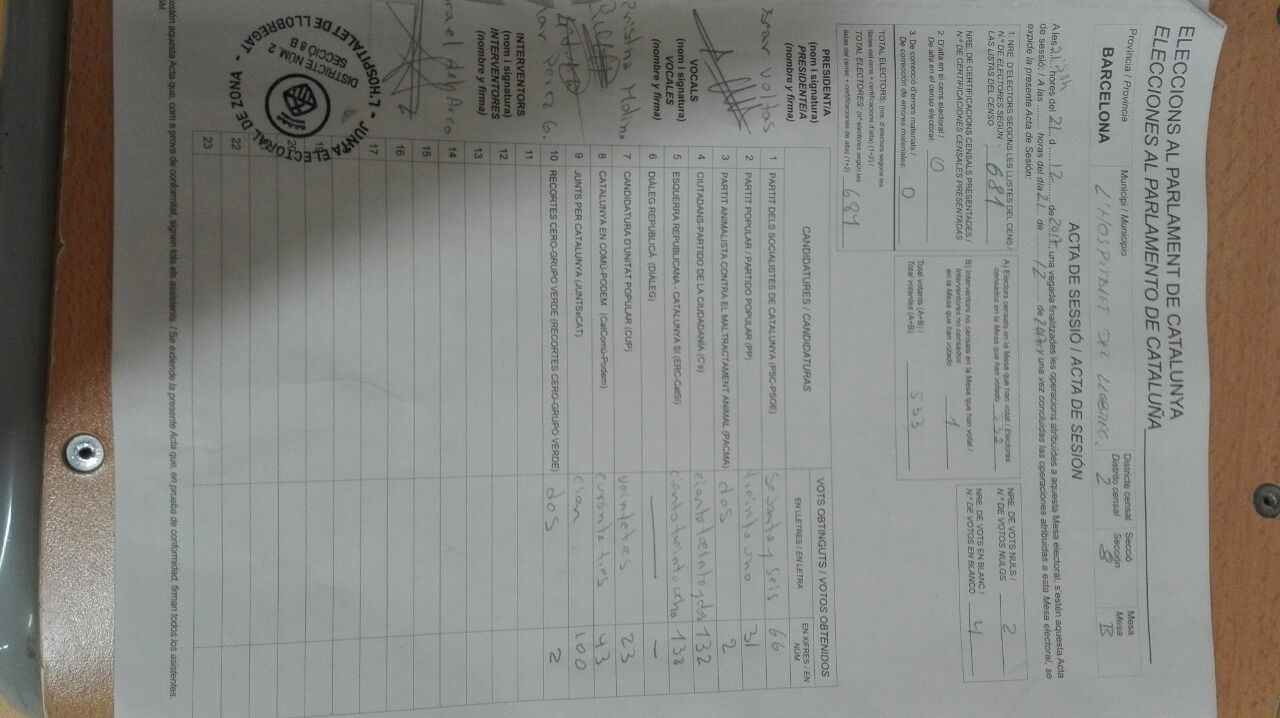 ELECCIONS AL PARLAMENT DE CATALUNYA
ELECCIONES AL PARLAMENTO DE CATALUÑA
Província / Provincia
BARCELONA
Municipi / Municipio
L'HOSPITALET DE LLOBREG.
Districte censal
Distrito censal
2
Secció
Sección
8
Mesa
Mesa
B
ACTA DE SESSIÓ / ACTA DE SESIÓN
A les hores del 21 d 12 de 2017, una vegada finalitzades les operacions atribuïdes a aquesta Mesa electoral, s'estén aquesta Acta
de sessió. / A las horas del día 21 de 12 de 2017 y una vez concluidas las operaciones atribuidas a esta Mesa electoral, se
expide la presente Acta de Sesión:
1. NRE. D'ELECTORS SEGONS LES LLISTES DEL CENS /
N.º DE ELECTORES SEGÚN
LAS LISTAS DEL CENSO
681
NRE. DE CERTIFICACIONS CENSALS PRESENTADES /
N.º DE CERTIFICACIONES CENSALES PRESENTADAS
2. D'alta en el cens electoral /
De alta en el censo electoral:
0
3. De correcció d'errors materials /
De corrección de errores materiales:
0
TOTAL ELECTORS: (nre. d'electors segons les
llistes del cens + certificacions d'alta) (1+2) /
TOTAL ELECTORES: (nº electores según las
listas del censo + certificaciones de alta) (1+2)
681
A) Electors censats en la Mesa que han votat / Electores
censados en la Mesa que han votado
532
B) Interventors no censats en la Mesa que han votat /
Interventores no censados
en la Mesa que han votado
1
Total votants (A+B) /
Total votantes (A+B)
533
NRE. DE VOTS NULS /
N.º DE VOTOS NULOS
2
NRE. DE VOTS EN BLANC /
N.º DE VOTOS EN BLANCO
4
PRESIDENT/A
(nom i signatura)
PRESIDENTE/A
(nombre y firma)
VOCALS
(nom i signatura)
VOCALES
(nombre y firma)
Molina
Perez G.
INTERVENTORS
(nom i signatura)
INTERVENTORES
(nombre y firma)
del Arco
CANDIDATURES / CANDIDATURAS
VOTS OBTINGUTS / VOTOS OBTENIDOS
EN LLETRES / EN LETRA
EN XIFRES / EN NÚM
1 PARTIT DELS SOCIALISTES DE CATALUNYA (PSC-PSOE) sesenta y seis 66
2 PARTIT POPULAR / PARTIDO POPULAR (PP) treinta uno 31
3 PARTIT ANIMALISTA CONTRA EL MALTRACTAMENT ANIMAL (PACMA) dos 2
4 CIUTADANS-PARTIDO DE LA CIUDADANÍA (C's) ciento treinta y dos 132
5 ESQUERRA REPUBLICANA - CATALUNYA SÍ (ERC-CatSí) ciento treinta ocho 138
6 DIÀLEG REPUBLICÀ (DIÀLEG) — —
7 CANDIDATURA D'UNITAT POPULAR (CUP) veintetres 23
8 CATALUNYA EN COMÚ-PODEM (CatComú-Podem) curenta tres 43
9 JUNTS PER CATALUNYA (JUNTSxCAT) cien 100
10 RECORTES CERO-GRUPO VERDE (RECORTES CERO-GRUPO VERDE) dos 2
11
12
13
14
15
16
17
18
19
20
22
23
JUNTA ELECTORAL DE ZONA · L'HOSPITALET DE LLOBREGAT
DISTRICTE NÚM. 2
SECCIÓ 8 B
estén aquesta Acta que, com a prova de conformitat, signen tots els assistents. / Se extiende la presente Acta que, en prueba de conformidad, firman todos los asistentes.